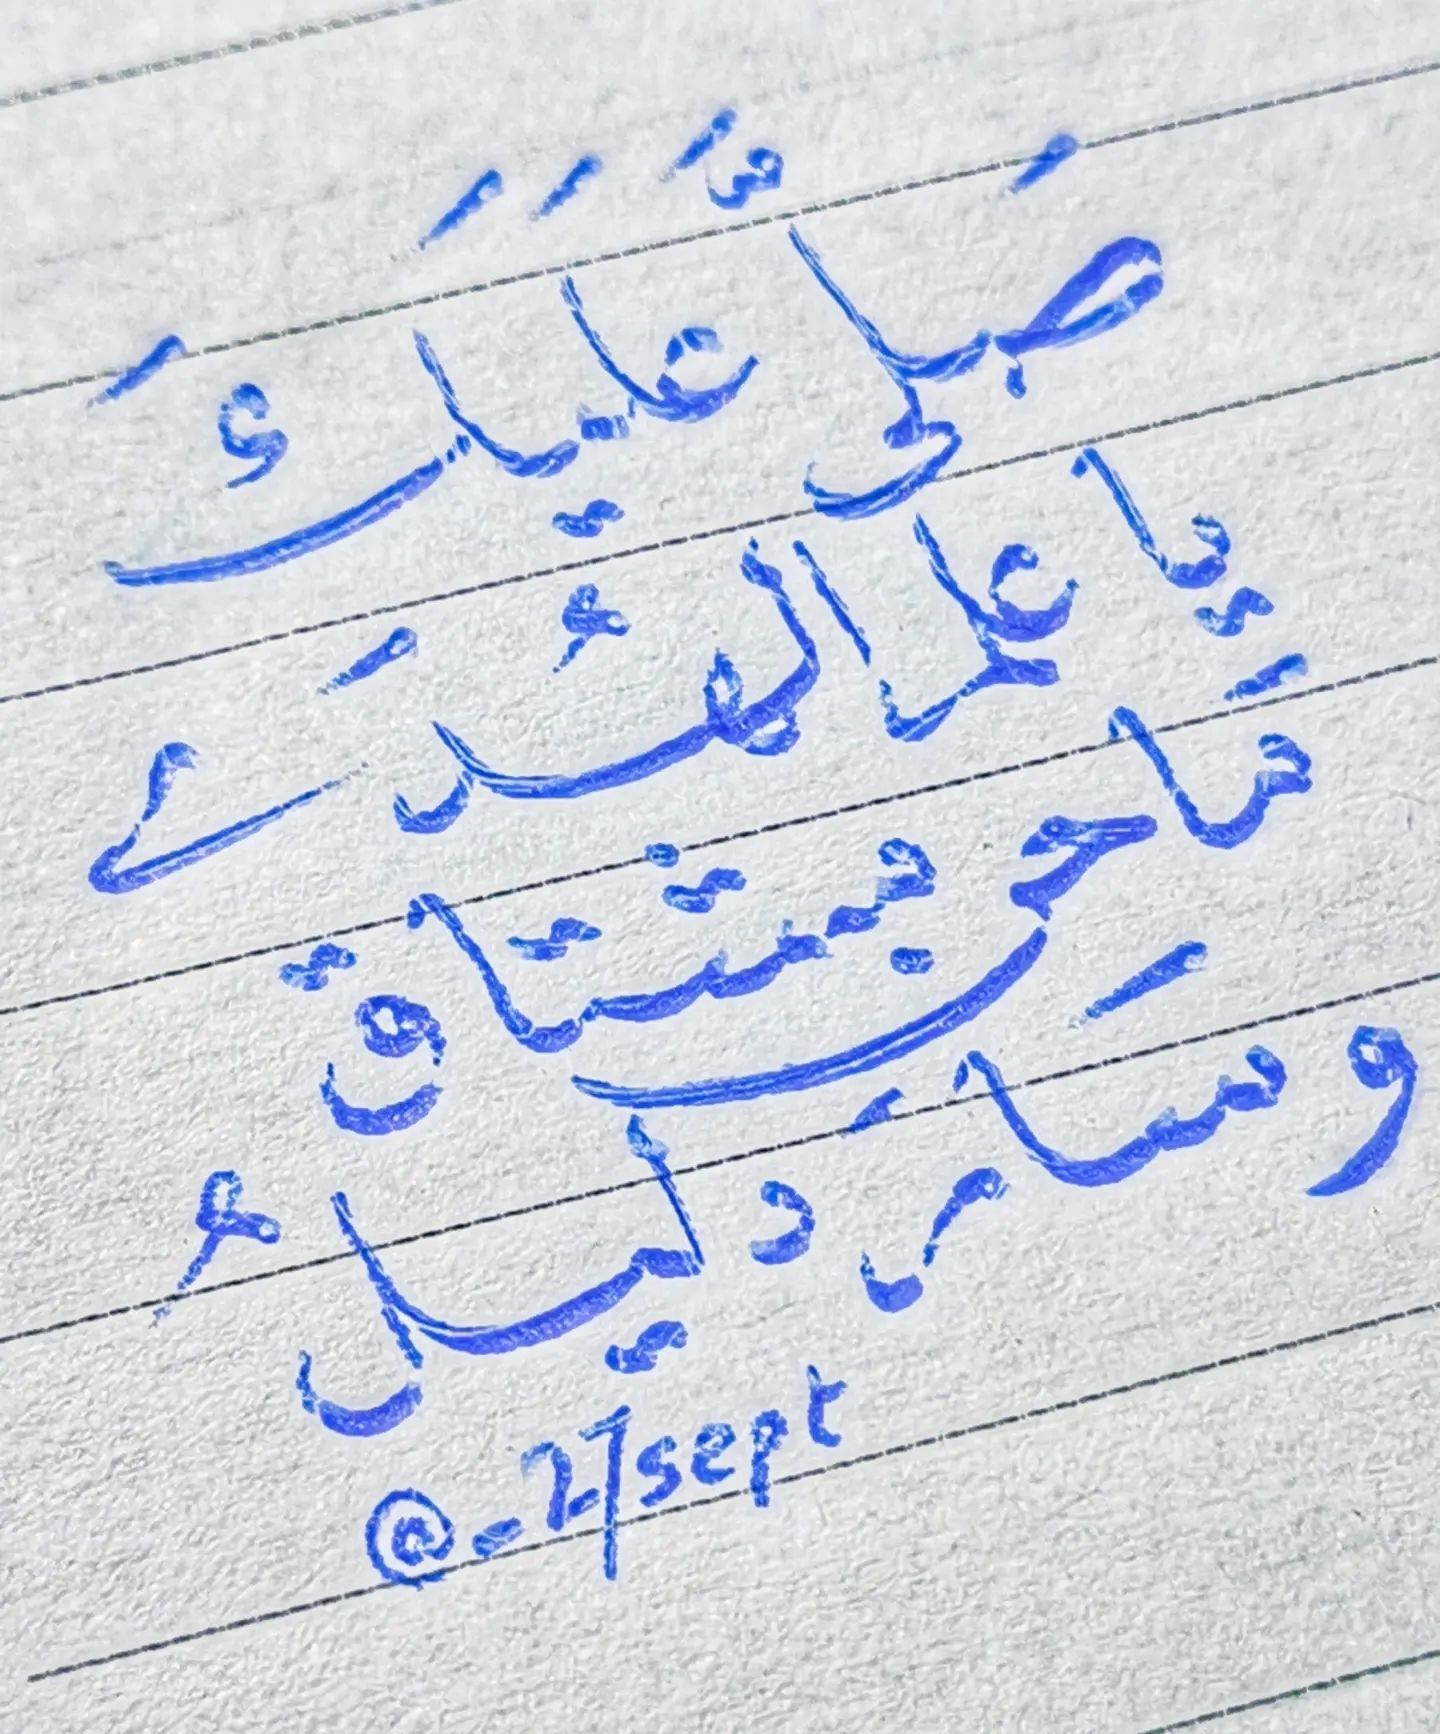 صَلَّى عَلَيَكَ
يا علم الهُدَى
مَا حن مشتاق
وسَارَ دليلُ
@_27sept